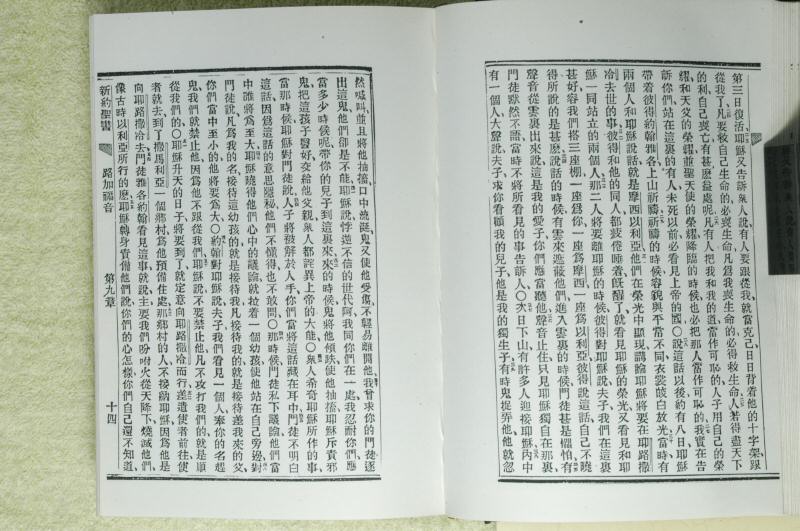 第三日復活耶穌又告訴衆人說有人要跟從我就當克己日日背着他的十字架跟
從我了凡要救自己生命的必喪生命凡爲我喪生命的必得救生命人若得盡天下
的利自己喪亡有甚麽益處呢凡有人把我和我的道當作可恥的人子用自己的榮
耀和天父的榮耀並聖天使的榮耀降臨的時候也必把那人當作可恥的我實在告
訴你們站在這裏的有人未死以前必看見上帝的國〇說這話以後約有八日耶穌
帶着彼得約翰雅各上山祈禱祈禱的時候容貌與平常不同衣裳皎白放光當時有
兩個人和耶穌說話就是摩西以利亞他們在榮光中顯現講論耶穌將要在耶路撒
冷去世的事彼得和他的同人都裝倦睡着旣醒了就看見耶穌的榮光又看見和耶
穌一同站立的兩個人那二人將要離耶穌的時候彼得對耶穌說夫子我們在這裏
甚好容我們搭三座棚一座爲你一座爲摩西一座爲以利亞彼得說這話自己不曉
得所說的是甚麽說話的時候有雲來遮蔽他們進入雲裏的時候門徒甚是懼怕有
聲音從雲裏出來說這是我的愛子你們應當聽他聲音止住只見耶穌獨自在那裏
門徒默然不語當時不把所看見的事告訴人〇次日下山有許多人迎接耶穌內中
有一個人大聲說夫子求你看顧我的兒子他是我的獨生子有時鬼捉弄他他就忽
然喊叫並且將他抽搐口中流涎鬼又使他受傷不輕易離開他我曾求你的門徒逐
出這鬼他們卻是不能耶穌說悖逆不信的世代阿我同你們在一處我忍耐你們應
當多少時候呢帶你的兒子到這裏來來的時候鬼將他傾跌使他抽搐耶穌斥責邪
鬼把這孩子醫好交給他父親衆人都詫異上帝的大能〇衆人希奇耶穌所作的事
當那時候耶穌對門徒說人子將被解於人手你們當將這話藏在耳中門徒不明白
這話因爲這話的意思隱祕他們不懂得也不敢問〇那時候門徒私下議論他們當
中誰將爲至大耶穌曉得他們心中的議論就拉着一個幼孩使他站在自己旁邊對
門徒說凡爲我的名接待這幼孩的就是接待我凡接待我的就是接待差我來的父
你們當中至小的他將要爲大〇約翰對耶穌說夫子我們看見一個人奉你的名趕
鬼我們就禁止他因爲他不跟從我們耶穌說不要禁止他凡不攻打我們的就是順
從我們的〇耶穌升天的日子將要到了就定意向耶路撒冷而行差遣使者前往使
者就去到了撒馬利亞一個鄉村爲他預備住處那鄉村的人不接納耶穌因爲他是
向耶路撒冷去門徒雅各約翰看見這事就說主要我們吩咐火從天降下燒滅他們
像古時以利亞所行的麽耶穌轉身責備他們說你們的心怎樣你們自己還不知道
新約聖書 路加福音 第九章 十四